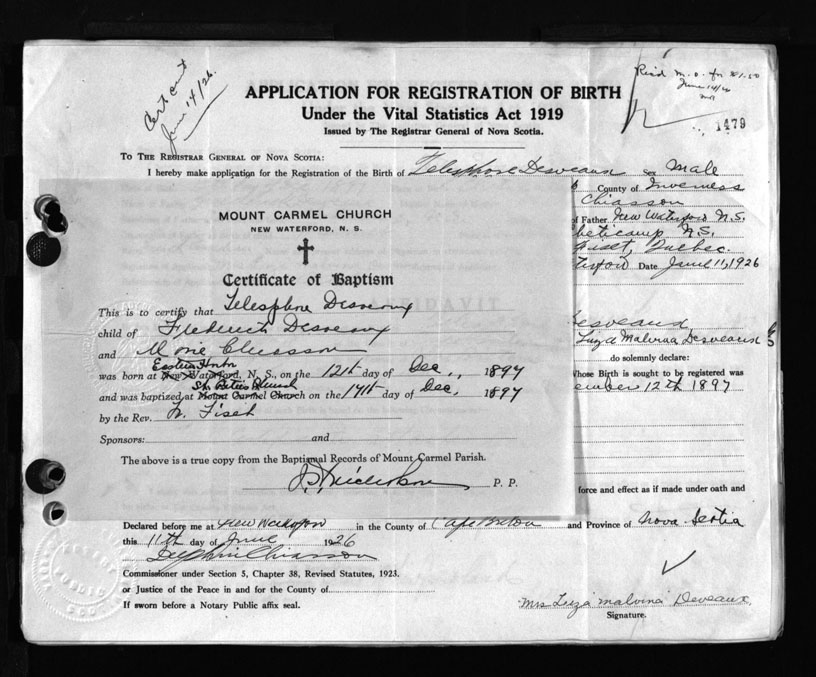 Cert cut
June 14/26.
June 14/26
1479
APPLICATION FOR REGISTRATION OF BIRTH
Under the Vital Statistics Act 1919
Issued by The Registrar General of Nova Scotia.
TO THE REGISTRAR GENERAL OF NOVA SCOTIA:
I hereby make application for the Registration of the Birth of Telesphore Desveaux Sex Male
County of Inverness
Chiasson
of Father New Waterford N.S.
heticamp N.S.
Quebec.
Date June 11, 1926
MOUNT CARMEL CHURCH
NEW WATERFORD, N. S.
Certificate of Baptism
This is to certify that Telesphore Desveaux
child of Frederick Desveaux
and Marie Chiasson
Eastern Harbor
was born at New Waterford, N. S., on the 12th day of Dec., 1897
St. Peters Church
and was baptized at Mount Carmel Church on the 17th day of Dec, 1897
by the Rev. Fiset
Sponsors: and
The above is a true copy from the Baptismal Records of Mount Carmel Parish.
P. P.
AFFIDAVIT
Desveaux
Luza Malvina Desveaux
do solemnly declare:
Whose Birth is sought to be registered was
ember 12th 1897
force and effect as if made under oath and
Declared before me at New Waterford in the County of Cape Breton and Province of Nova Scotia
this 11th day of June 1926
Delphin Chiasson
Commissioner under Section 5, Chapter 38, Revised Statutes, 1923.
or Justice of the Peace in and for the County of
If sworn before a Notary Public affix seal.
Mrs Luza Malvina Deveaux
Signature.